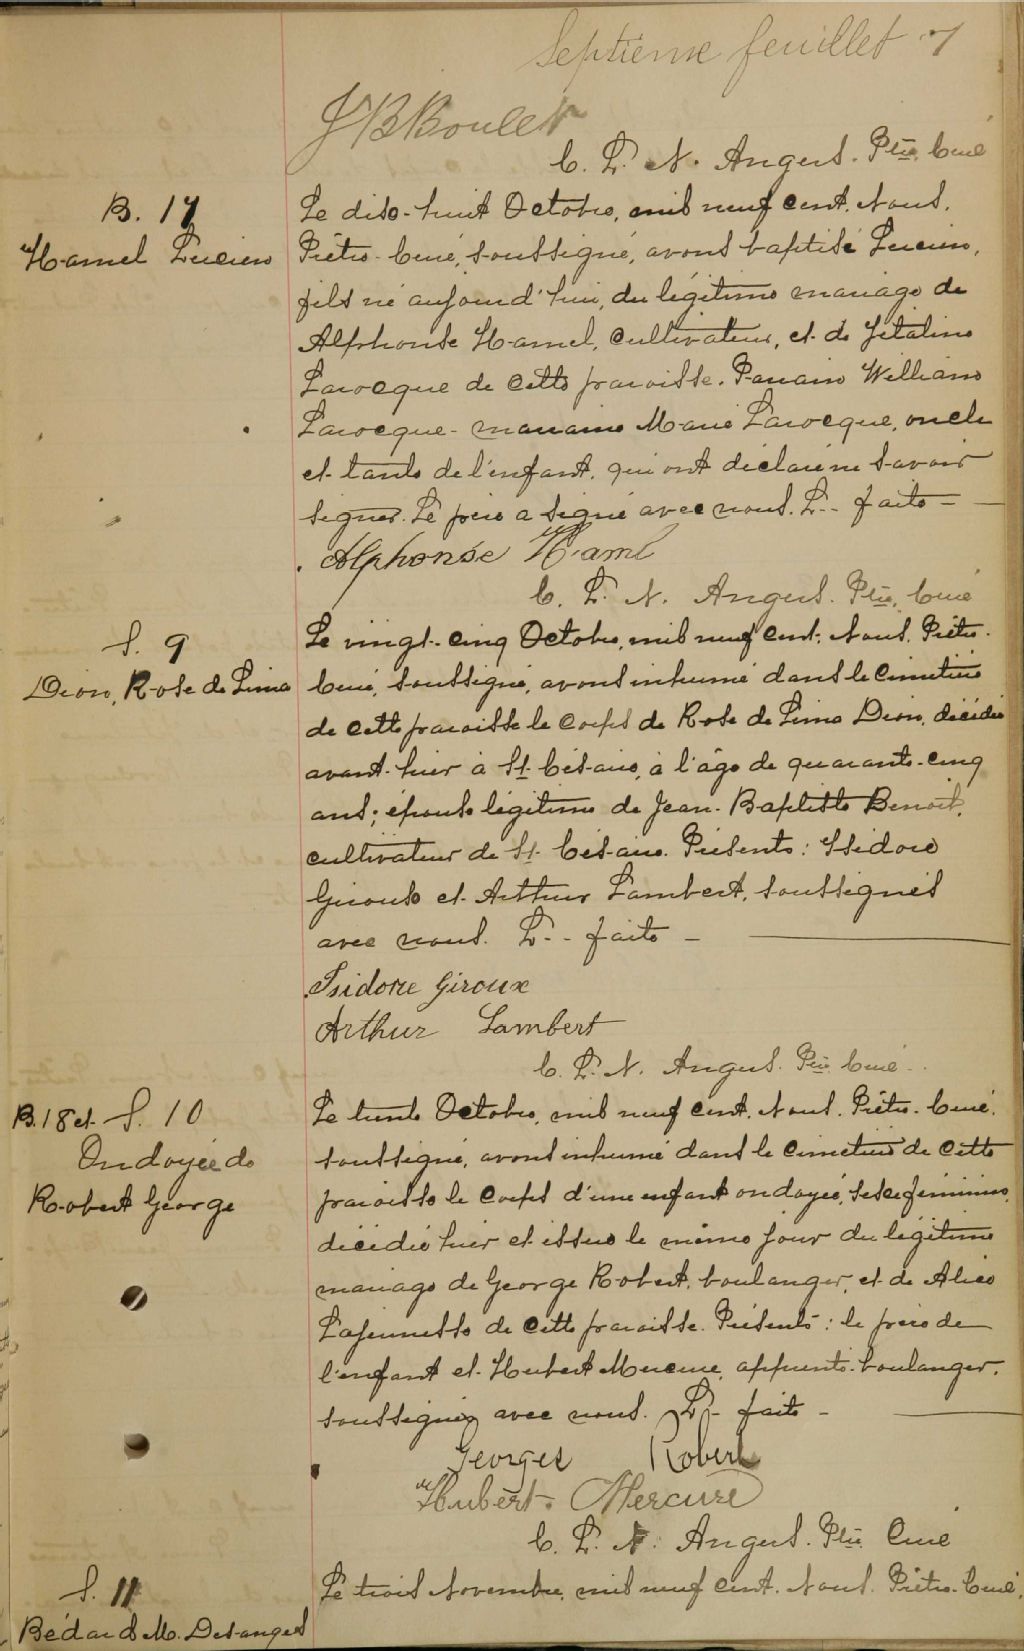 Septième feuillet 7
J B Boulet
C. L. N. Angers. Ptre, Curé
B. 17
Hamel Lucien
Le dix-huit Octobre, mil neuf cent. Nous,
Prêtre-Curé, soussigné, avons baptisé Lucien,
fils né aujourd'hui, du légitime mariage de
Alphonse Hamel, cultivateur, et de Vitaline
Larocque de cette paroisse. Parrain William
Larocque - marraine Marie Larocque, oncle
et tante de l'enfant, qui ont déclaré ne savoir
signer. Le père a signé avec nous. L-- faite -
Alphonse Haml
C. L. N. Angers. Ptre, Curé
S. 9
Dion, Rose de Lima
Le vingt-cinq Octobre, mil neuf cent; Nous, Prêtre-
Curé, soussigné, avons inhumé dans le cimetière
de cette paroisse le corps de Rose de Lima Dion, décédée
avant-hier à St-Césaire, à l'âge de quarante-cinq
ans; épouse légitime de Jean-Baptiste Benoit,
cultivateur de St-Césaire. Présents: Isidore
Giroux et Arthur Lambert, soussignés
avec nous. L-- faite -
Isidore Giroux
Arthur Lambert
C. L. N. Angers. Ptre Curé
B. 18 et S. 10
Ondoyée de
Robert George
Le trente Octobre, mil neuf cent, Nous, Prêtre-Curé,
soussigné, avons inhumé dans le cimetière de cette
paroisse le corps d'une enfant ondoyée, sexe féminin,
décédée hier et issue le même jour du légitime
mariage de George Robert, boulanger, et de Alice
Lajeunesse de cette paroisse. Présents: le père de
l'enfant et Hubert Mercure, apprenti-boulanger,
soussignés avec nous. L-- faite -
Georges Robert
Hubert. Mercure
C. L. N. Angers. Ptre Curé
S. 11
Bédard M. Desanges
Le trois Novembre, mil neuf cent. Nous, Prêtre-Curé,